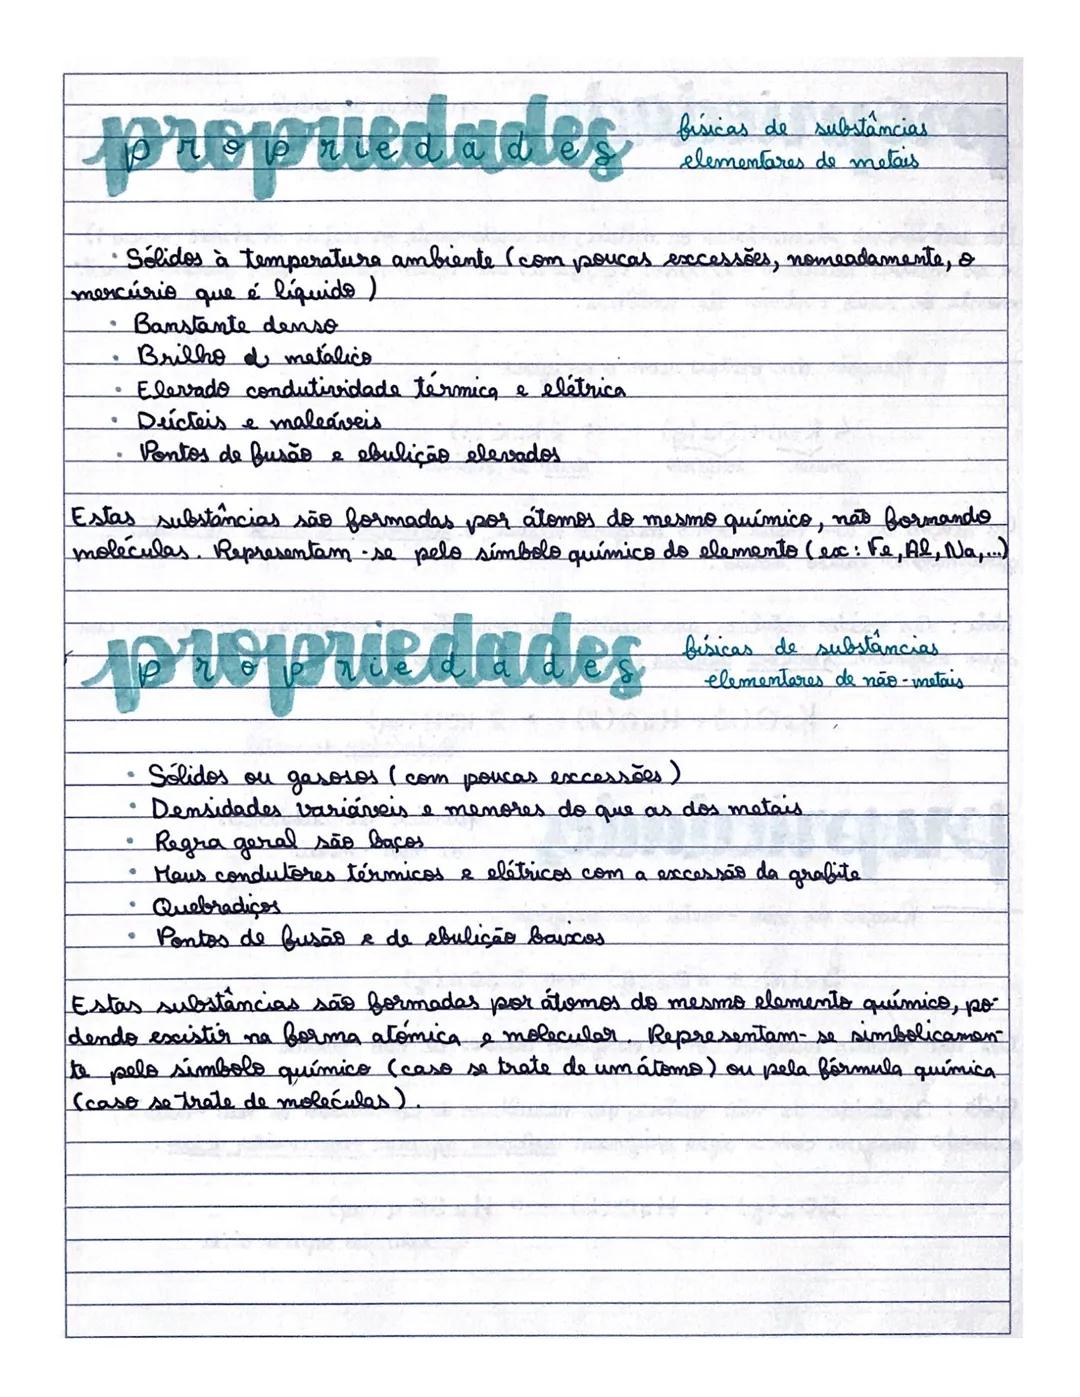 propriedades físicas de substâncias
elementares de metais
• Sólidos à temperatura ambiente (com poucas excessões, nomeadamente, o
mercúrio que é líquido)
• Banstante denso
• Brilho metálico
• Elevado condutividade térmica e elétrica
• Dúcteis e maleáveis
• Pontos de fusão e ebulição elevados
Estas substâncias são formadas por átomos do mesmo químico, não formando
moléculas. Representam-se pelo símbolo químico do elemento (ex: Fe, Al, Na,...)
propriedades físicas de substâncias
elementares de não-metais
• Sólidos ou gasosos (com poucas excessões)
• Densidades variáveis e menores do que as dos metais
• Regra geral são baços
• Maus condutores térmicos e elétricos com a excessão da grafite
• Quebradiços
• Pontos de fusão e de ebulição baixos
Estas substâncias são formadas por átomos do mesmo elemento químico, po-
dendo existir na forma atómica e molecular. Representam-se simbolicamen-
te pelo símbolo químico (caso se trate de um átomo) ou pela fórmula química
(caso se trate de moléculas).